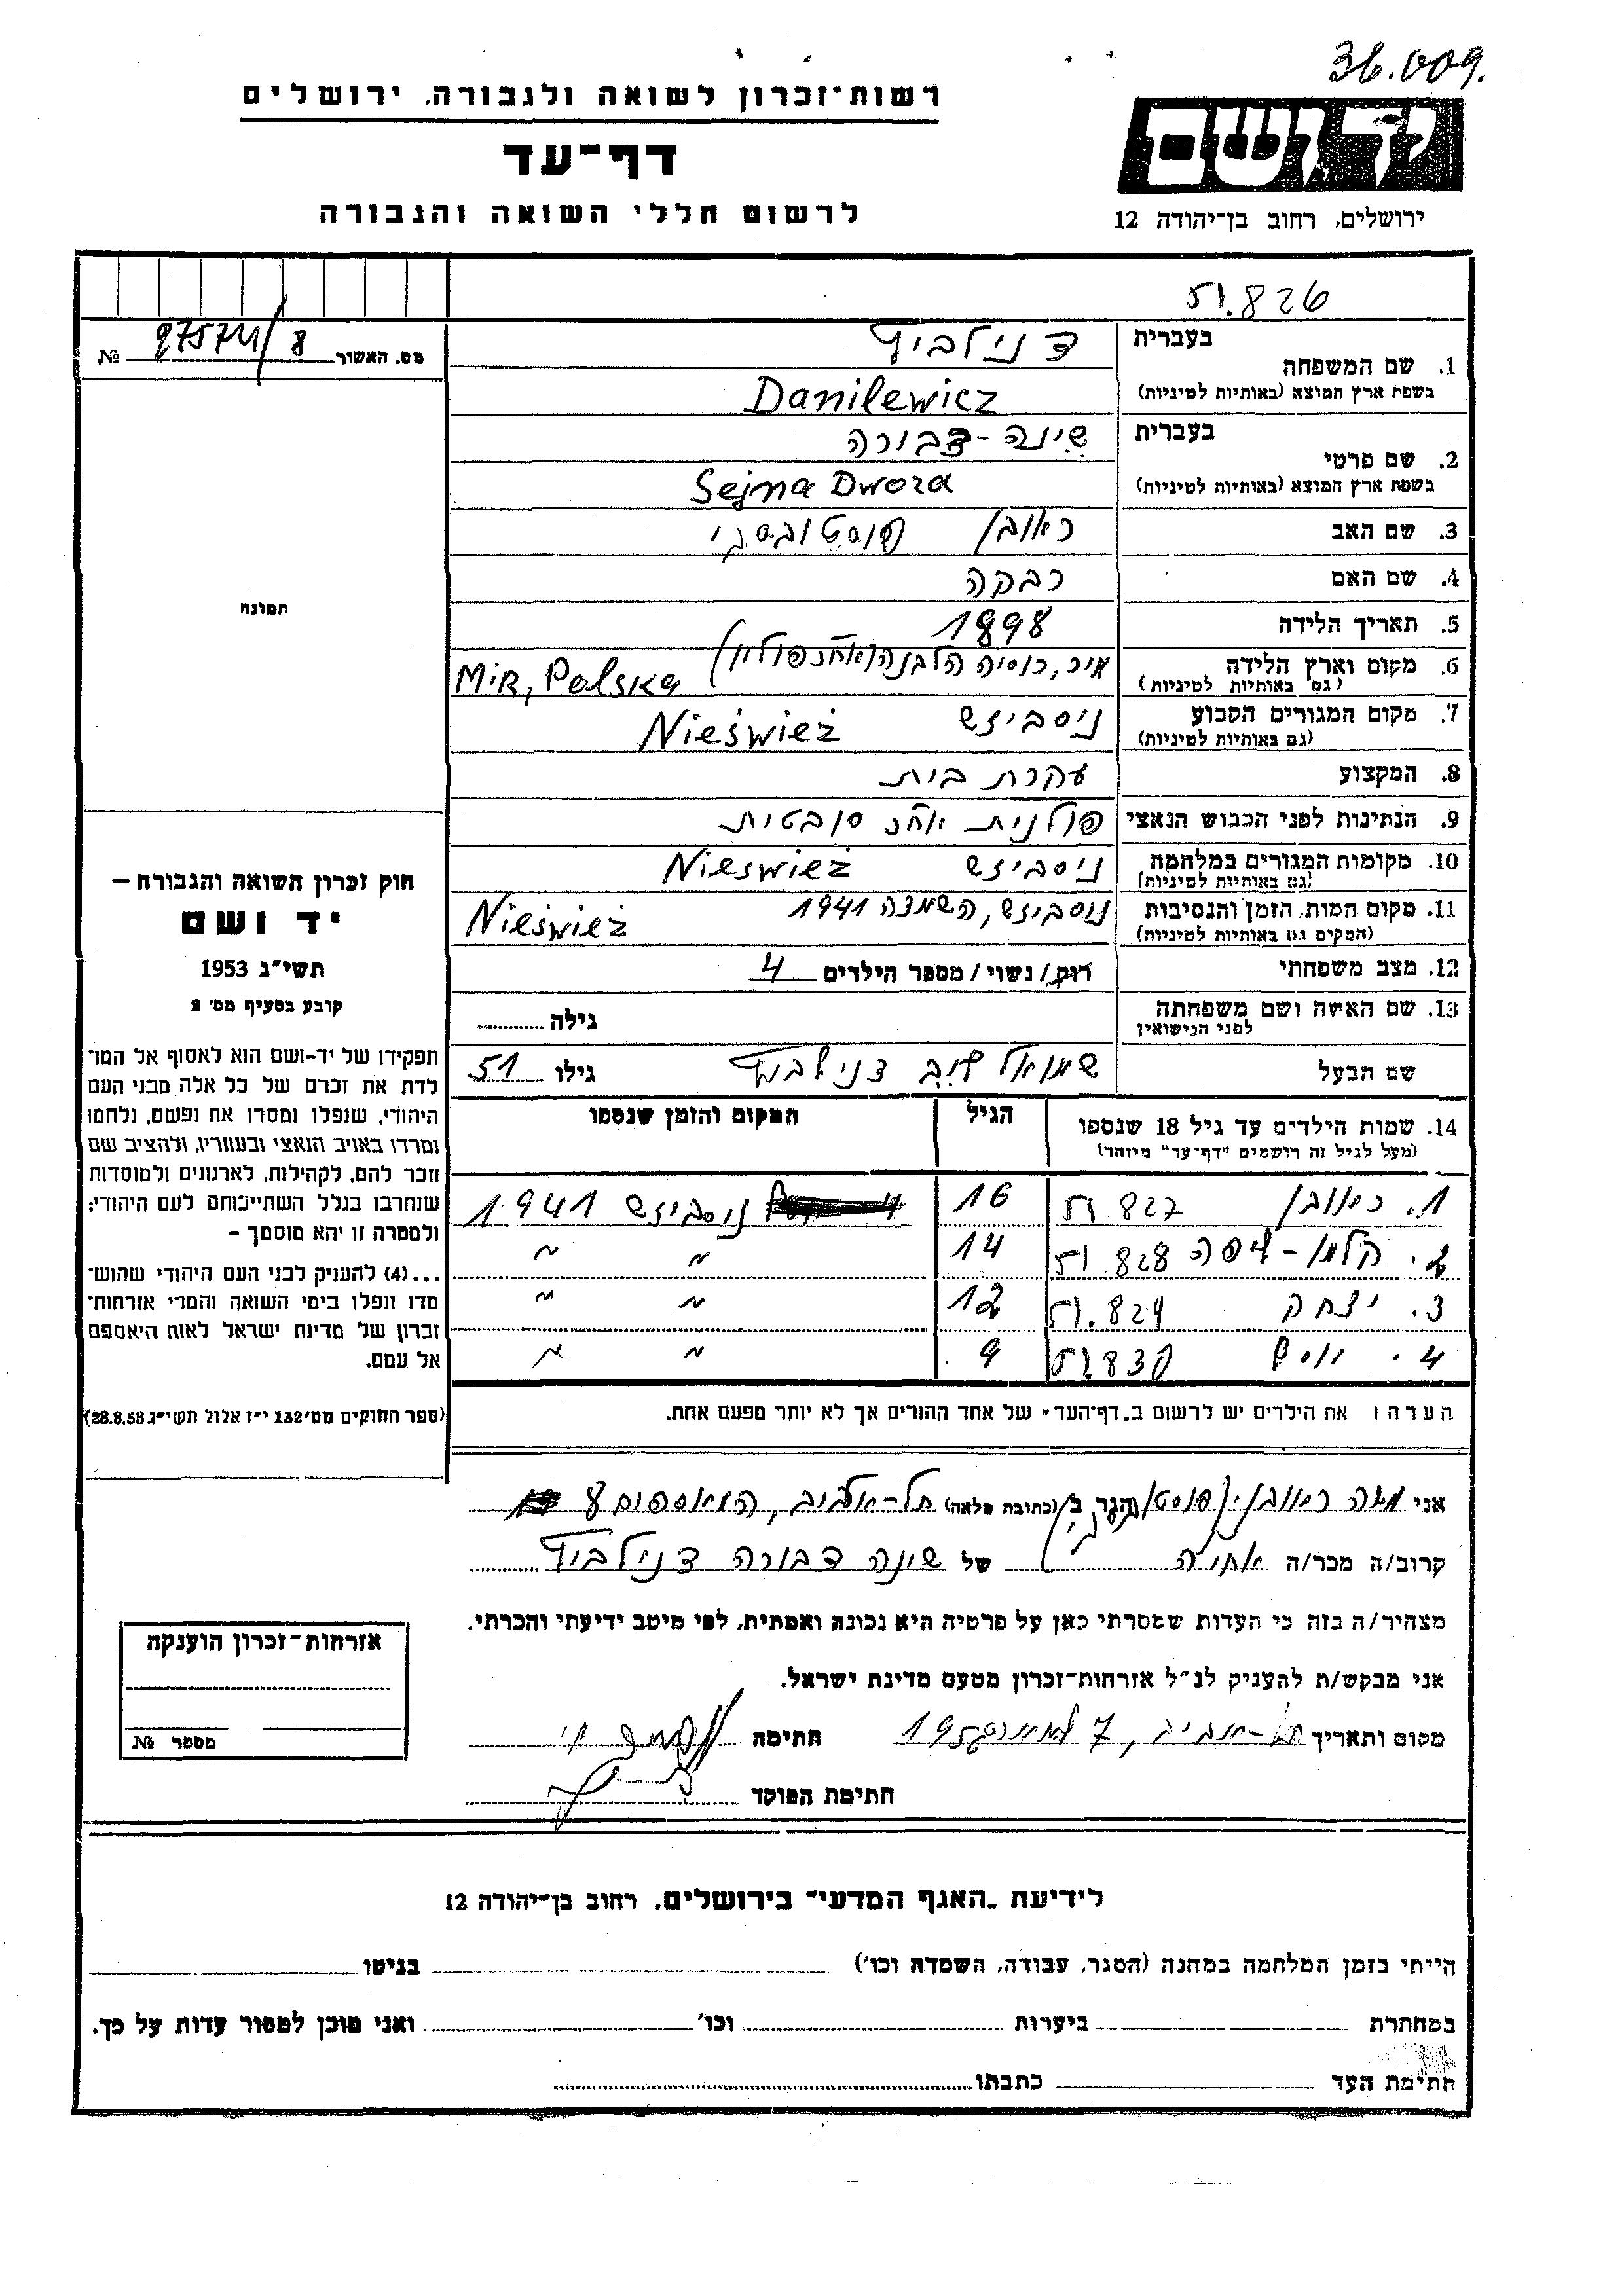 36.009.
רשות-זכרון לשואה ולגבורה, ירושלים
יד ושם
דף-עד
לרשום חללי השואה והגבורה
ירושלים, רחוב בן-יהודה 12
51.826
מס. האשור 27574/8 №
1. שם המשפחה
בעברית דנילביץ
בשפת ארץ המוצא (באותיות לטיניות) Danilewicz
2. שם פרטי
בעברית שינה-דבורה
בשפת ארץ המוצא (באותיות לטיניות) Sejna Dwora
3. שם האב ראובן
4. שם האם רבקה
5. תאריך הלידה 1898
6. מקום וארץ הלידה מיר, רוסיה הלבנה (אח״כ פולין)
(גם באותיות לטיניות) Mir, Polska
7. מקום המגורים הקבוע ניסביזש Nieśwież
(גם באותיות לטיניות)
8. המקצוע עקרת בית
9. הנתינות לפני הכבוש הנאצי פולנית אח״כ סובטית
10. מקומות המגורים במלחמה ניסביזש Nieśwież
(גם באותיות לטיניות)
11. מקום המות, הזמן והנסיבות ניסביזש, השמדה 1941 Nieśwież
(המקום גם באותיות לטיניות)
12. מצב משפחתי רוק/נשוי/מספר הילדים 4
13. שם האישה ושם משפחתה
לפני הנישואין גילה
שם הבעל שמואל דנילביץ גילו 51
14. שמות הילדים עד גיל 18 שנספו הגיל המקום והזמן שנספו
(מעל לגיל זה רושמים "דף-עד" מיוחד)
1. ראובן 51.827 16 ניסביזש 1941
2. 51.828 14 " "
3. יצחק 51.829 12 " "
4. יוסף 51.830 9 " "
הערה: את הילדים יש לרשום ב"דף-העד" של אחד ההורים אך לא יותר מפעם אחת.
תמונה
חוק זכרון השואה והגבורה —
יד ושם
תשי"ג 1953
קובע בסעיף מס' 2
תפקידו של יד-ושם הוא לאסוף אל המו־
לדת את זכרם של כל אלה מבני העם
היהודי, שנפלו ומסרו את נפשם, נלחמו
ומרדו באויב הנאצי ובעוזריו, ולהציב שם
וזכר להם, לקהילות, לארגונים ולמוסדות
שנחרבו בגלל השתייכותם לעם היהודי;
ולמטרה זו יהא מוסמך —
...(4) להעניק לבני העם היהודי שהוש־
מדו ונפלו בימי השואה והמרי אזרחות־
זכרון של מדינת ישראל לאות היאספם
אל עמם.
(ספר החוקים מס' 132 י"ז אלול תשי"ג 28.8.53)
אני משה ראובני הגר ב (כתובת מלאה) תל-אביב, 8
קרוב/ה מכר/ה אחיה של שינה דבורה דנילביץ
מצהיר/ה בזה כי העדות שמסרתי כאן על פרטיה היא נכונה ואמתית, לפי מיטב ידיעתי והכרתי.
אני מבקש/ת להעניק לנ"ל אזרחות-זכרון מטעם מדינת ישראל.
מקום ותאריך תל-אביב, 7 חתימה
חתימת הפוקד
אזרחות-זכרון הוענקה
מספר №
לידיעת "האגף המדעי" בירושלים, רחוב בן-יהודה 12
הייתי בזמן המלחמה במחנה (הסגר, עבודה, השמדה וכו') בגיטו
במחתרת ביערות וכו' ואני מוכן למסור עדות על כך.
חתימת העד כתבתו